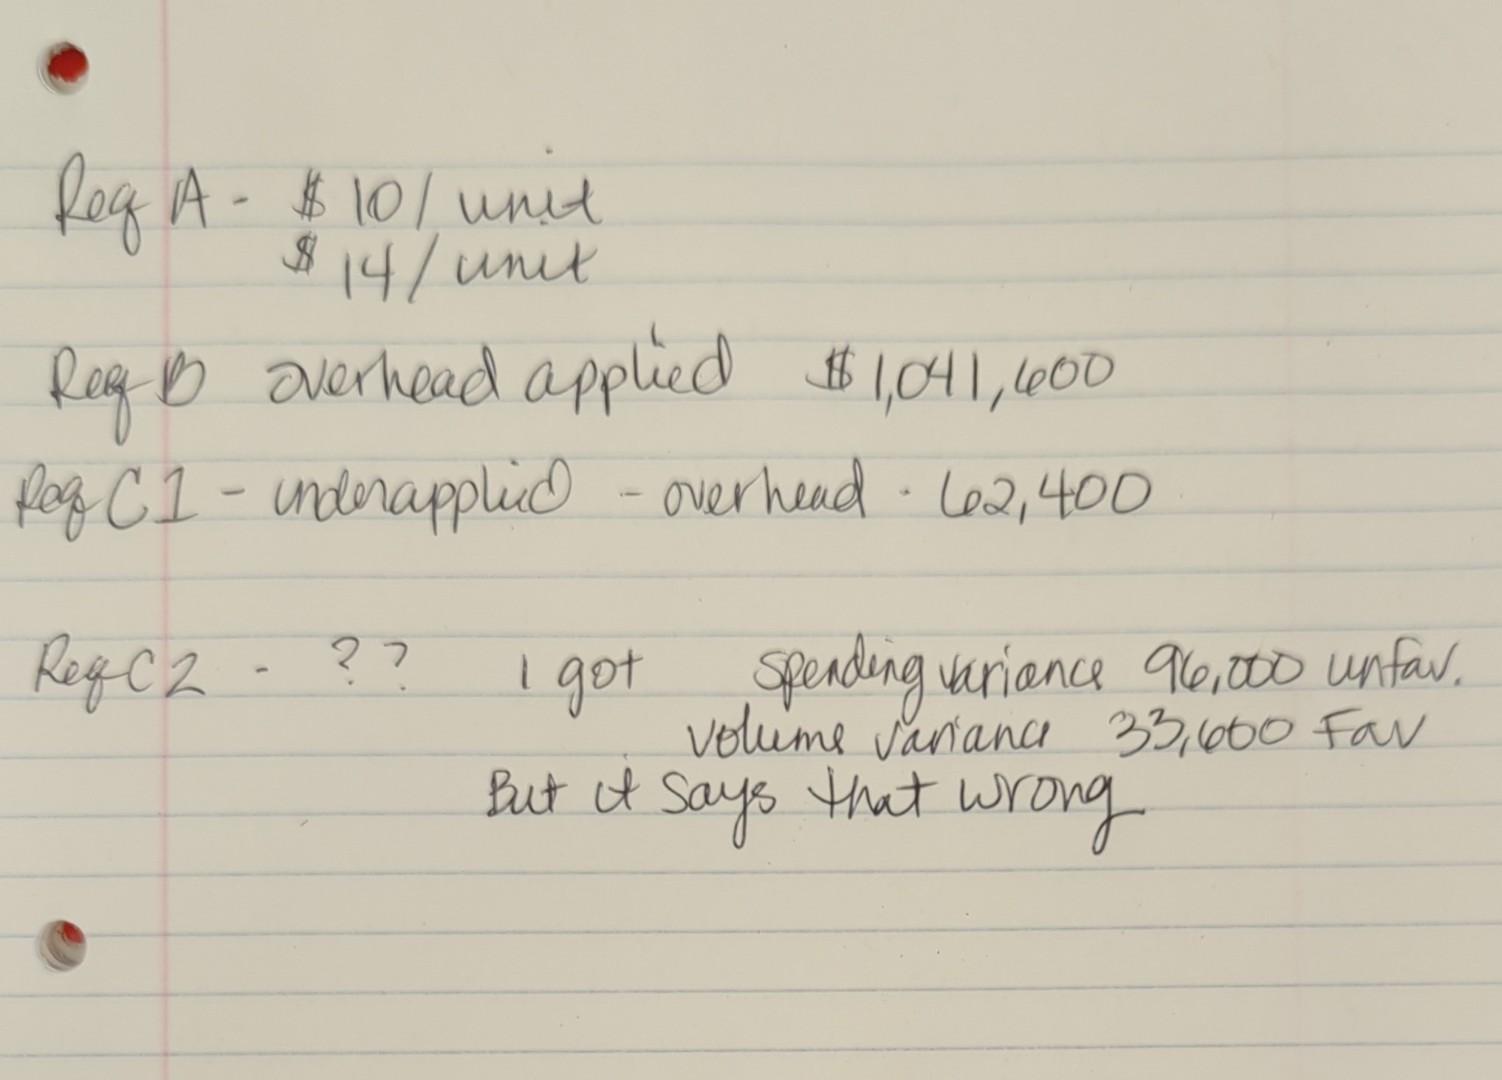 Req A - $ 10/unit
$ 14/unit
Req B overhead applied $1,041,600
Req C1 - underapplied - overhead · 62,400
Req C2 - ?? I got spending variance 96,000 unfav.
volume variance 33,600 Fav
But it says that wrong